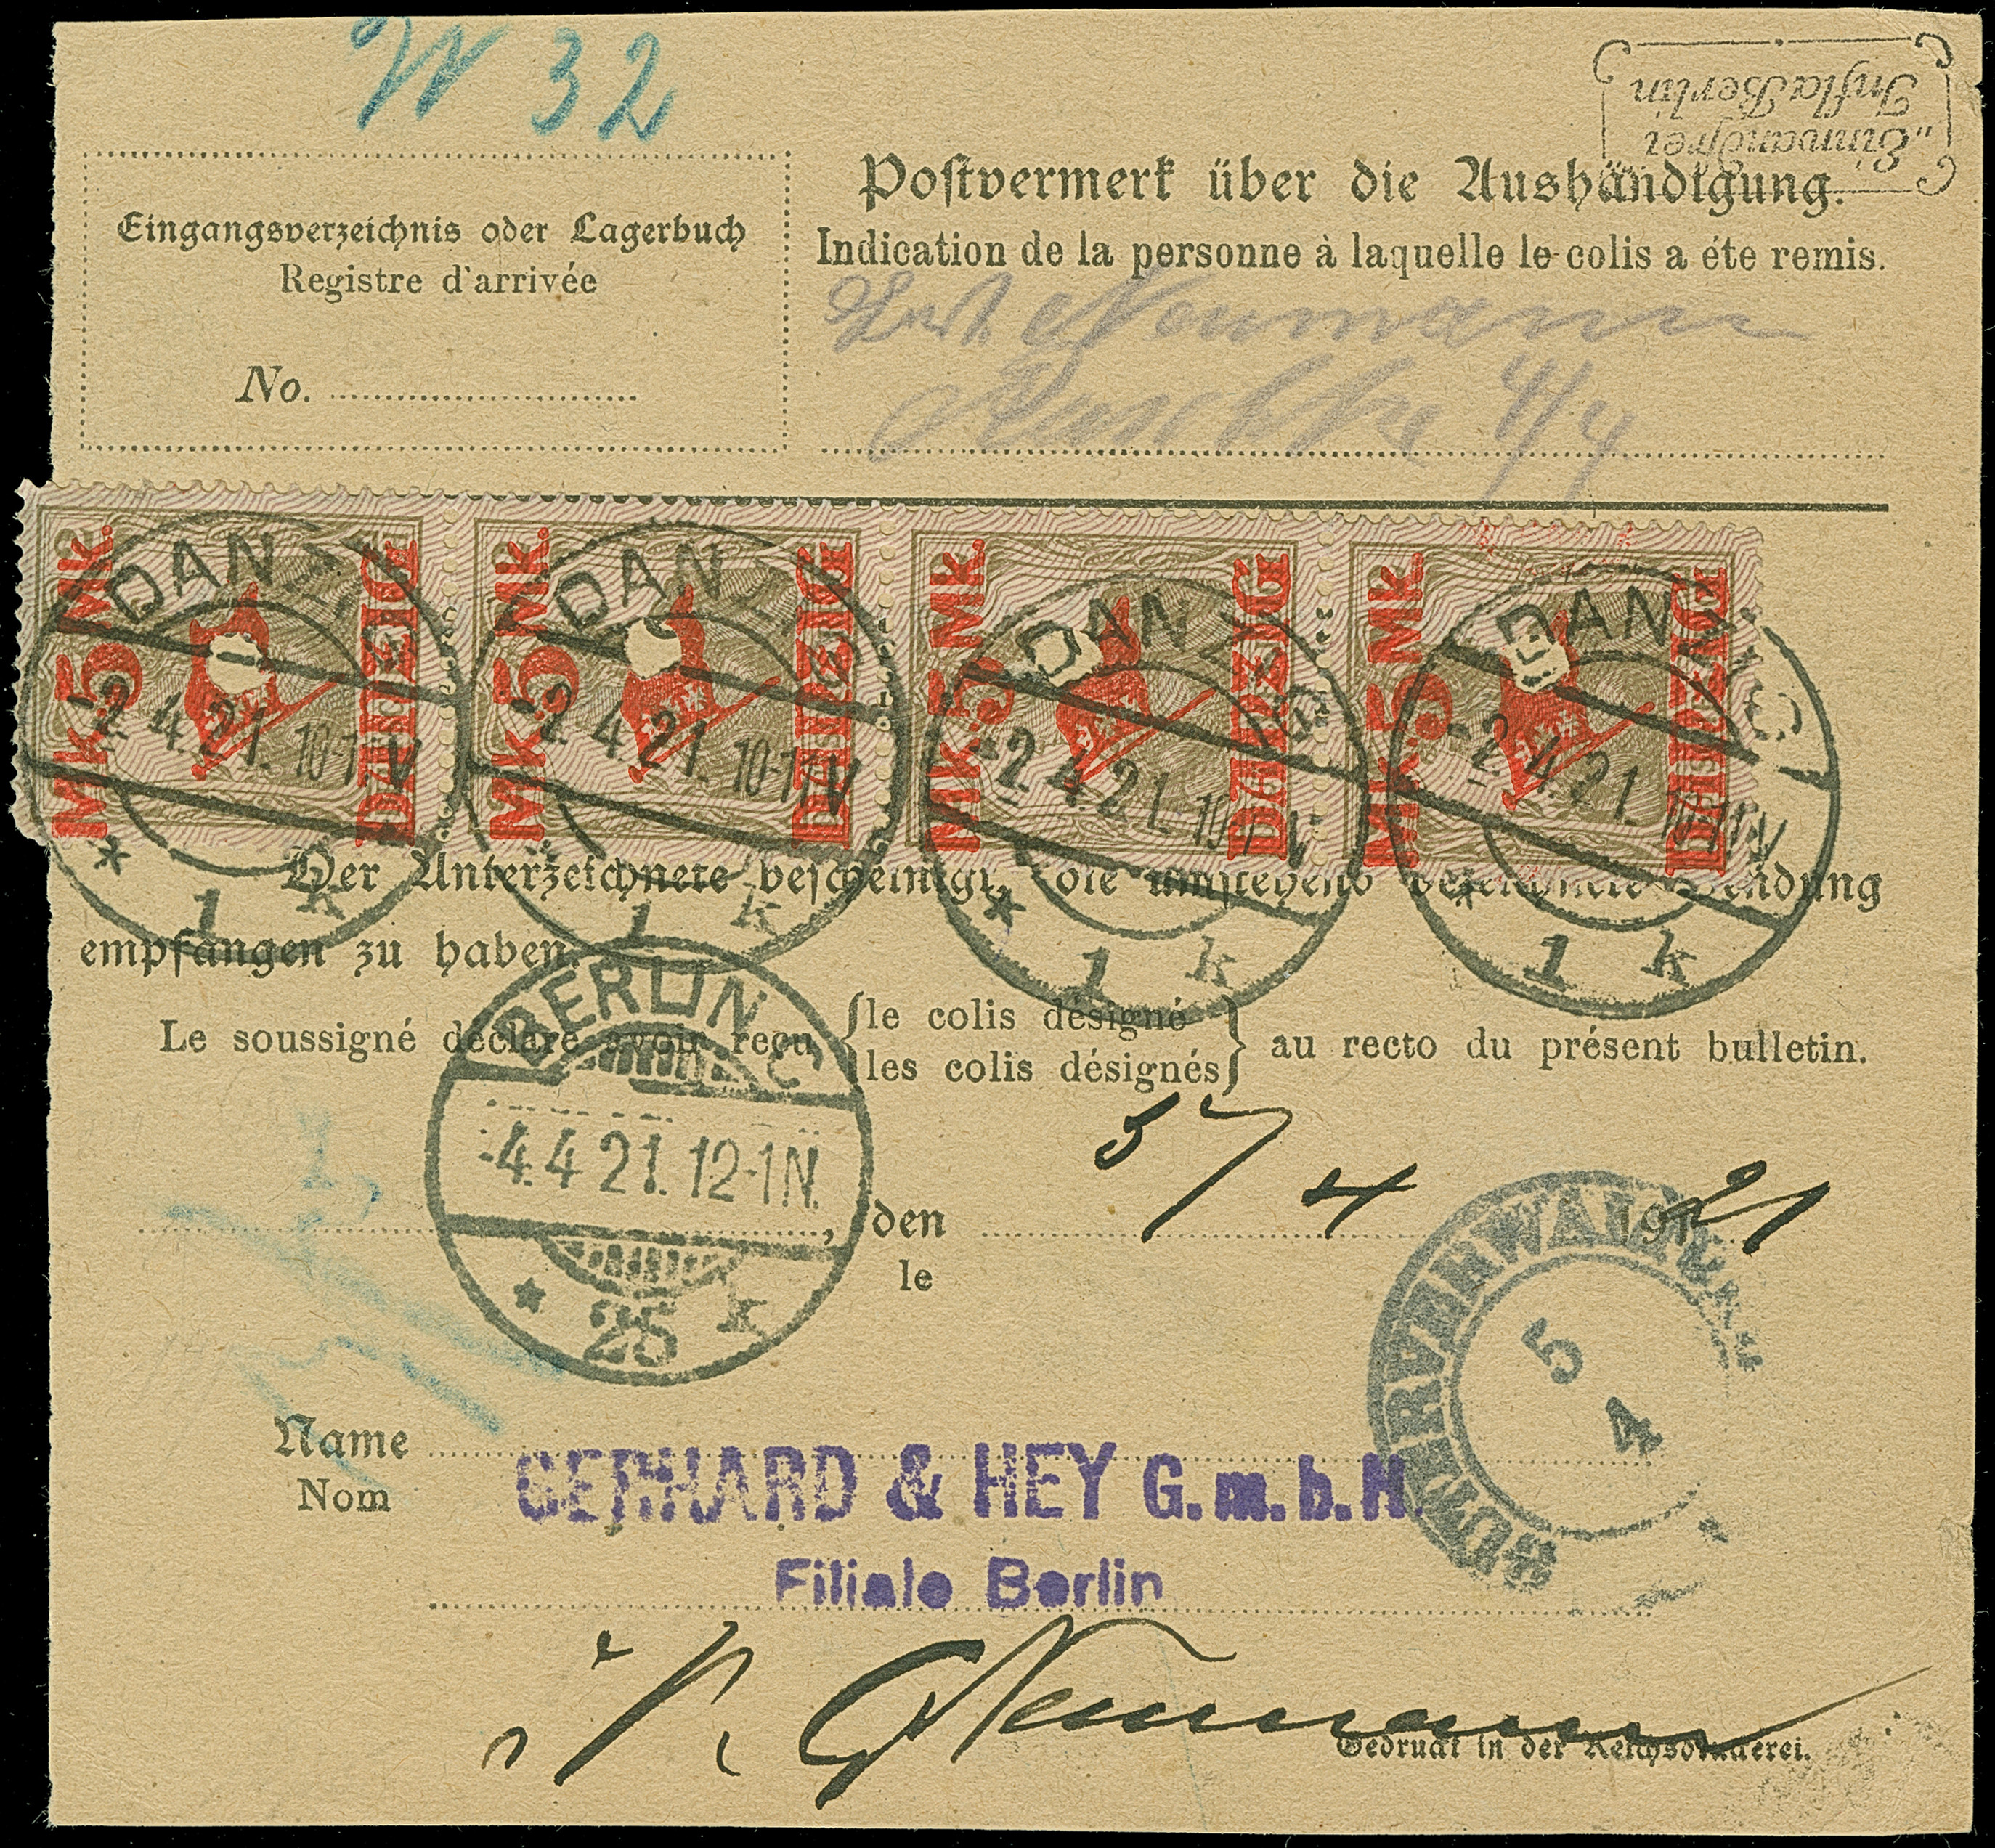 W 32
"Einwandfrei"
Infla Berlin
Postvermerk über die Aushändigung.
Indication de la personne à laquelle le colis a éte remis.
Eingangsverzeichnis oder Lagerbuch
Registre d'arrivée
No.
Neumann
4/4
Mk. 5 Mk. DANZIG
Mk. 5 Mk. DANZIG
Mk. 5 Mk. DANZIG
Mk. 5 Mk. DANZIG
DANZIG -2.4.21. 10-11V * 1 k
DANZIG -2.4.21. 10-11V * 1 k
DANZIG -2.4.21. 10-11V * 1 k
DANZIG -2.4.21. 10-11V * 1 k
Der Unterzeichnete bescheinigt, die umstehend bezeichnete Sendung
empfangen zu haben.
Le soussigné déclare avoir reçu {le colis désigné / les colis désignés} au recto du présent bulletin.
BERLIN C
-4.4.21.12-1N.
* 25 k
, den 5/4 1921
le
5
4
Name
Nom
GERHARD & HEY G.m.b.H.
Filiale Berlin
Neumann
Gedruckt in der Reichsdruckerei.